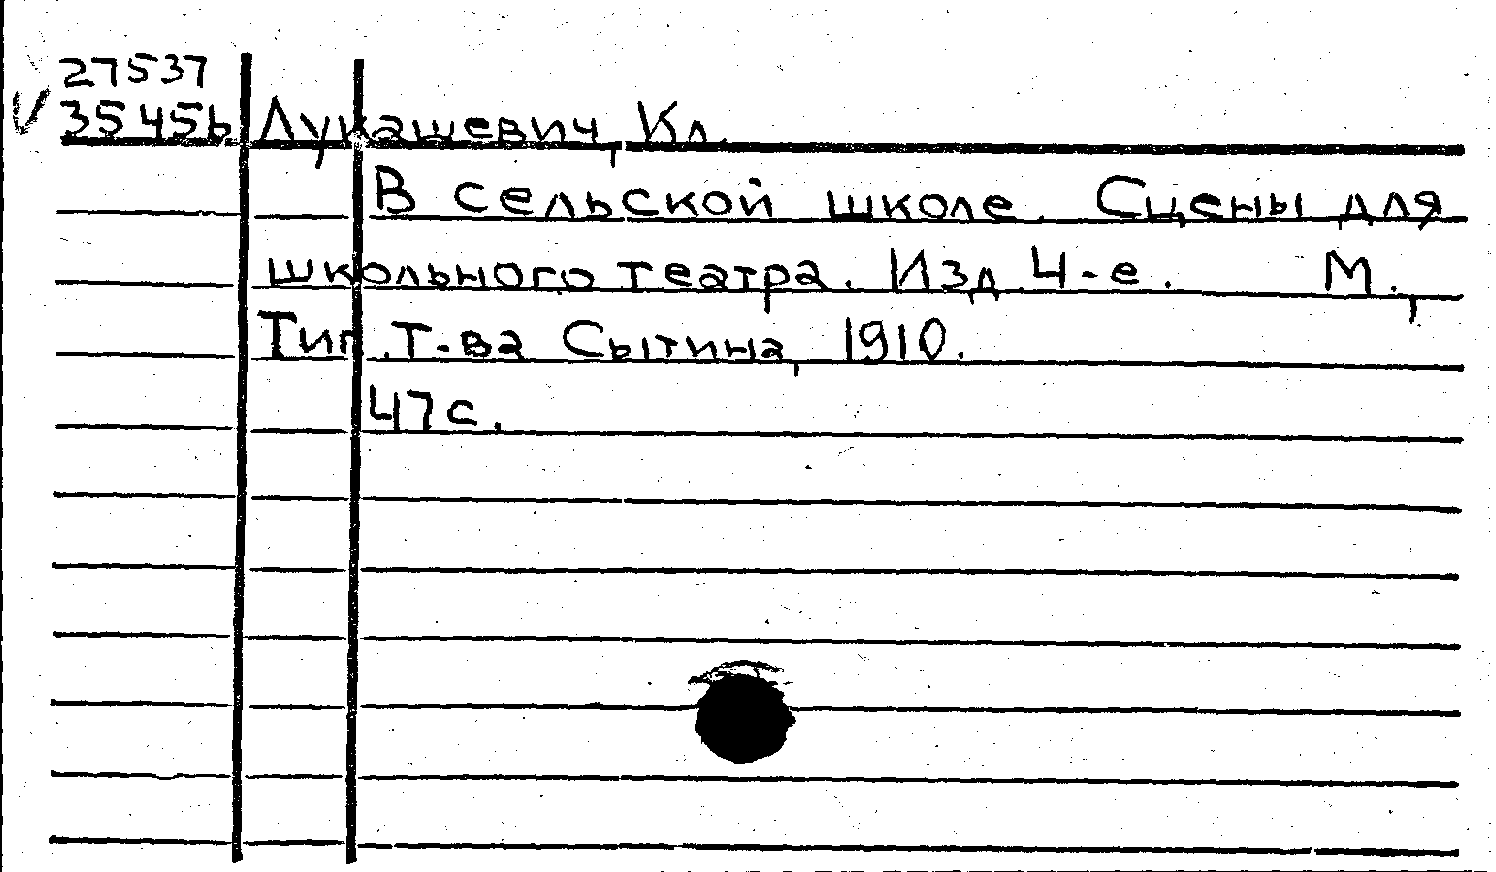 27537
V 35456 Лукашевич, Кл.
В сельской школе. Сцены для
школьного театра. Изд 4-е. М.,
Тип. Т-ва Сытина, 1910.
47 с.